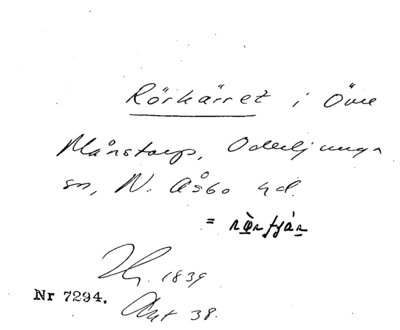 Rörkärret i Övre
Månstorp, Oderljunga
sn, N. Åsbo hd.
=
Hy. 1839
Nr 7294. Akt 38.